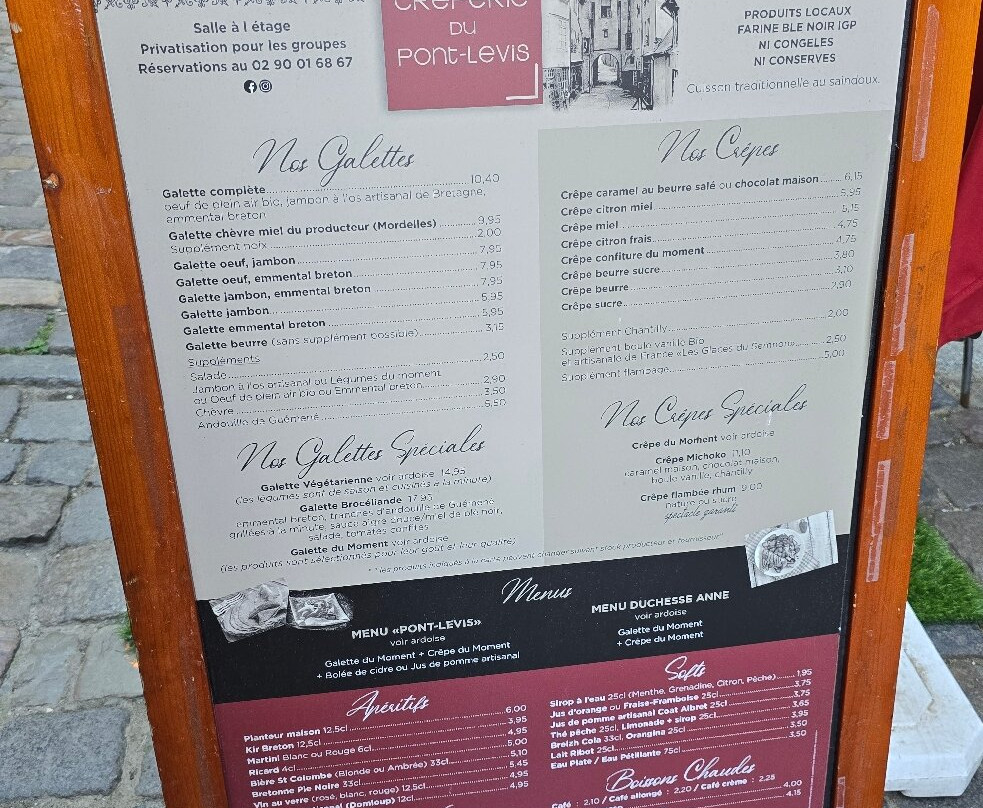 Salle à l étage
Privatisation pour les groupes
Réservations au 02 90 01 68 67
CRÊPERIE
DU
PONT-LEVIS
PRODUITS LOCAUX
FARINE BLE NOIR IGP
NI CONGELES
NI CONSERVES
Cuisson traditionnelle au saindoux.
Nos Galettes
Galette complète 10,40
oeuf de plein air bio, jambon à l'os artisanal de Bretagne,
emmental breton
Galette chèvre miel du producteur (Mordelles) 9,95
Supplément noix 2,00
Galette oeuf, jambon 7,95
Galette oeuf, emmental breton 7,95
Galette jambon, emmental breton 7,95
Galette jambon 5,95
Galette emmental breton 5,95
Galette beurre (sans supplément possible) 3,15
Suppléments
Salade 2,50
Jambon à l'os artisanal ou Légumes du moment
ou Oeuf de plein air bio ou Emmental breton 2,90
Chèvre 3,50
Andouille de Guémené 5,50
Nos Galettes Spéciales
Galette Végétarienne voir ardoise 14,95
(les légumes sont de saison et cuisinés à la minute)
Galette Brocéliande 17,95
emmental breton, tranches d'andouille de Guémené
grillées à la minute, sauce aigre douce/miel de blé noir,
salade, tomates confites
Galette du Moment voir ardoise
(les produits sont sélectionnés pour leur goût et leur qualité)
Nos Crêpes
Crêpe caramel au beurre salé ou chocolat maison 6,15
Crêpe citron miel 5,95
Crêpe miel 5,15
Crêpe citron frais 4,75
Crêpe confiture du moment 4,75
Crêpe beurre sucre 3,80
Crêpe beurre 3,10
Crêpe sucre 2,90
Supplément Chantilly 2,00
Supplément boule vanille Bio
et artisanale de France «Les Glaces du 2,50
Supplément flambage 5,00
Nos Crêpes Spéciales
Crêpe du Moment voir ardoise
Crêpe Michoko 11,10
caramel maison, chocolat maison,
boule vanille, chantilly
Crêpe flambée rhum 9,00
nature ou sucre
spectacle garanti
**les produits indiqués à la carte peuvent changer suivant stock producteur et fournisseur**
Menus
MENU «PONT-LEVIS»
voir ardoise
Galette du Moment + Crêpe du Moment
+ Bolée de cidre ou Jus de pomme artisanal
MENU DUCHESSE ANNE
voir ardoise
Galette du Moment
+ Crêpe du Moment
Apéritifs
Planteur maison 12,5cl 6,00
Kir Breton 12,5cl 3,95
Martini Blanc ou Rouge 6cl 4,95
Ricard 4cl 5,00
Bière St Colombe (Blonde ou Ambrée) 33cl 5,10
Bretonne Pie Noire 33cl 5,45
Vin au verre (rosé, blanc, rouge) 12,5cl 4,95
(Domloup) 12cl
Softs
Sirop à l'eau 25cl (Menthe, Grenadine, Citron, Pêche) 1,95
Jus d'orange ou Fraise-Framboise 25cl 3,75
Jus de pomme artisanal Coat Albret 25cl 3,75
Thé pêche 25cl, Limonade + sirop 25cl 3,65
Breizh Cola 33cl, Orangina 25cl 3,95
Lait Ribot 25cl 3,50
Eau Plate / Eau Pétillante 75cl 3,50
Boissons Chaudes
Café : 2,10 / Café allongé : 2,20 / Café crème : 2,25
4,00
4,15